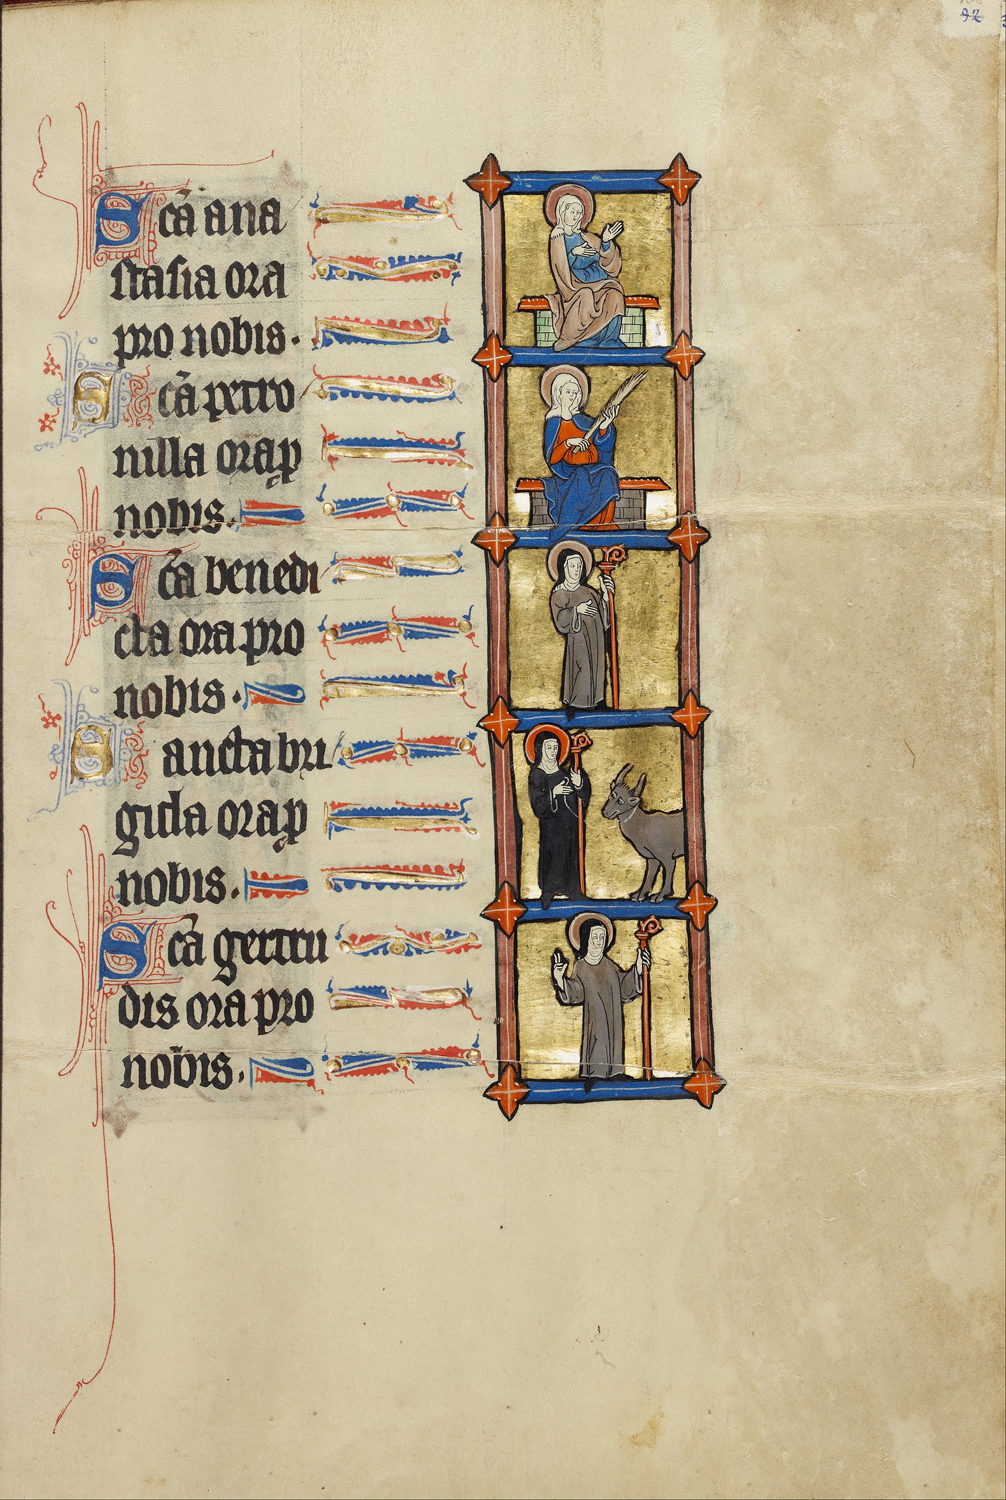 92
Scā ana
stasia ora
pro nobis.
Scā petro
nilla ora ꝓ
nobis.
Scā benedi
cta ora pro
nobis.
Sancta bri
gida ora ꝓ
nobis.
Scā gertru
dis ora pro
nobis.